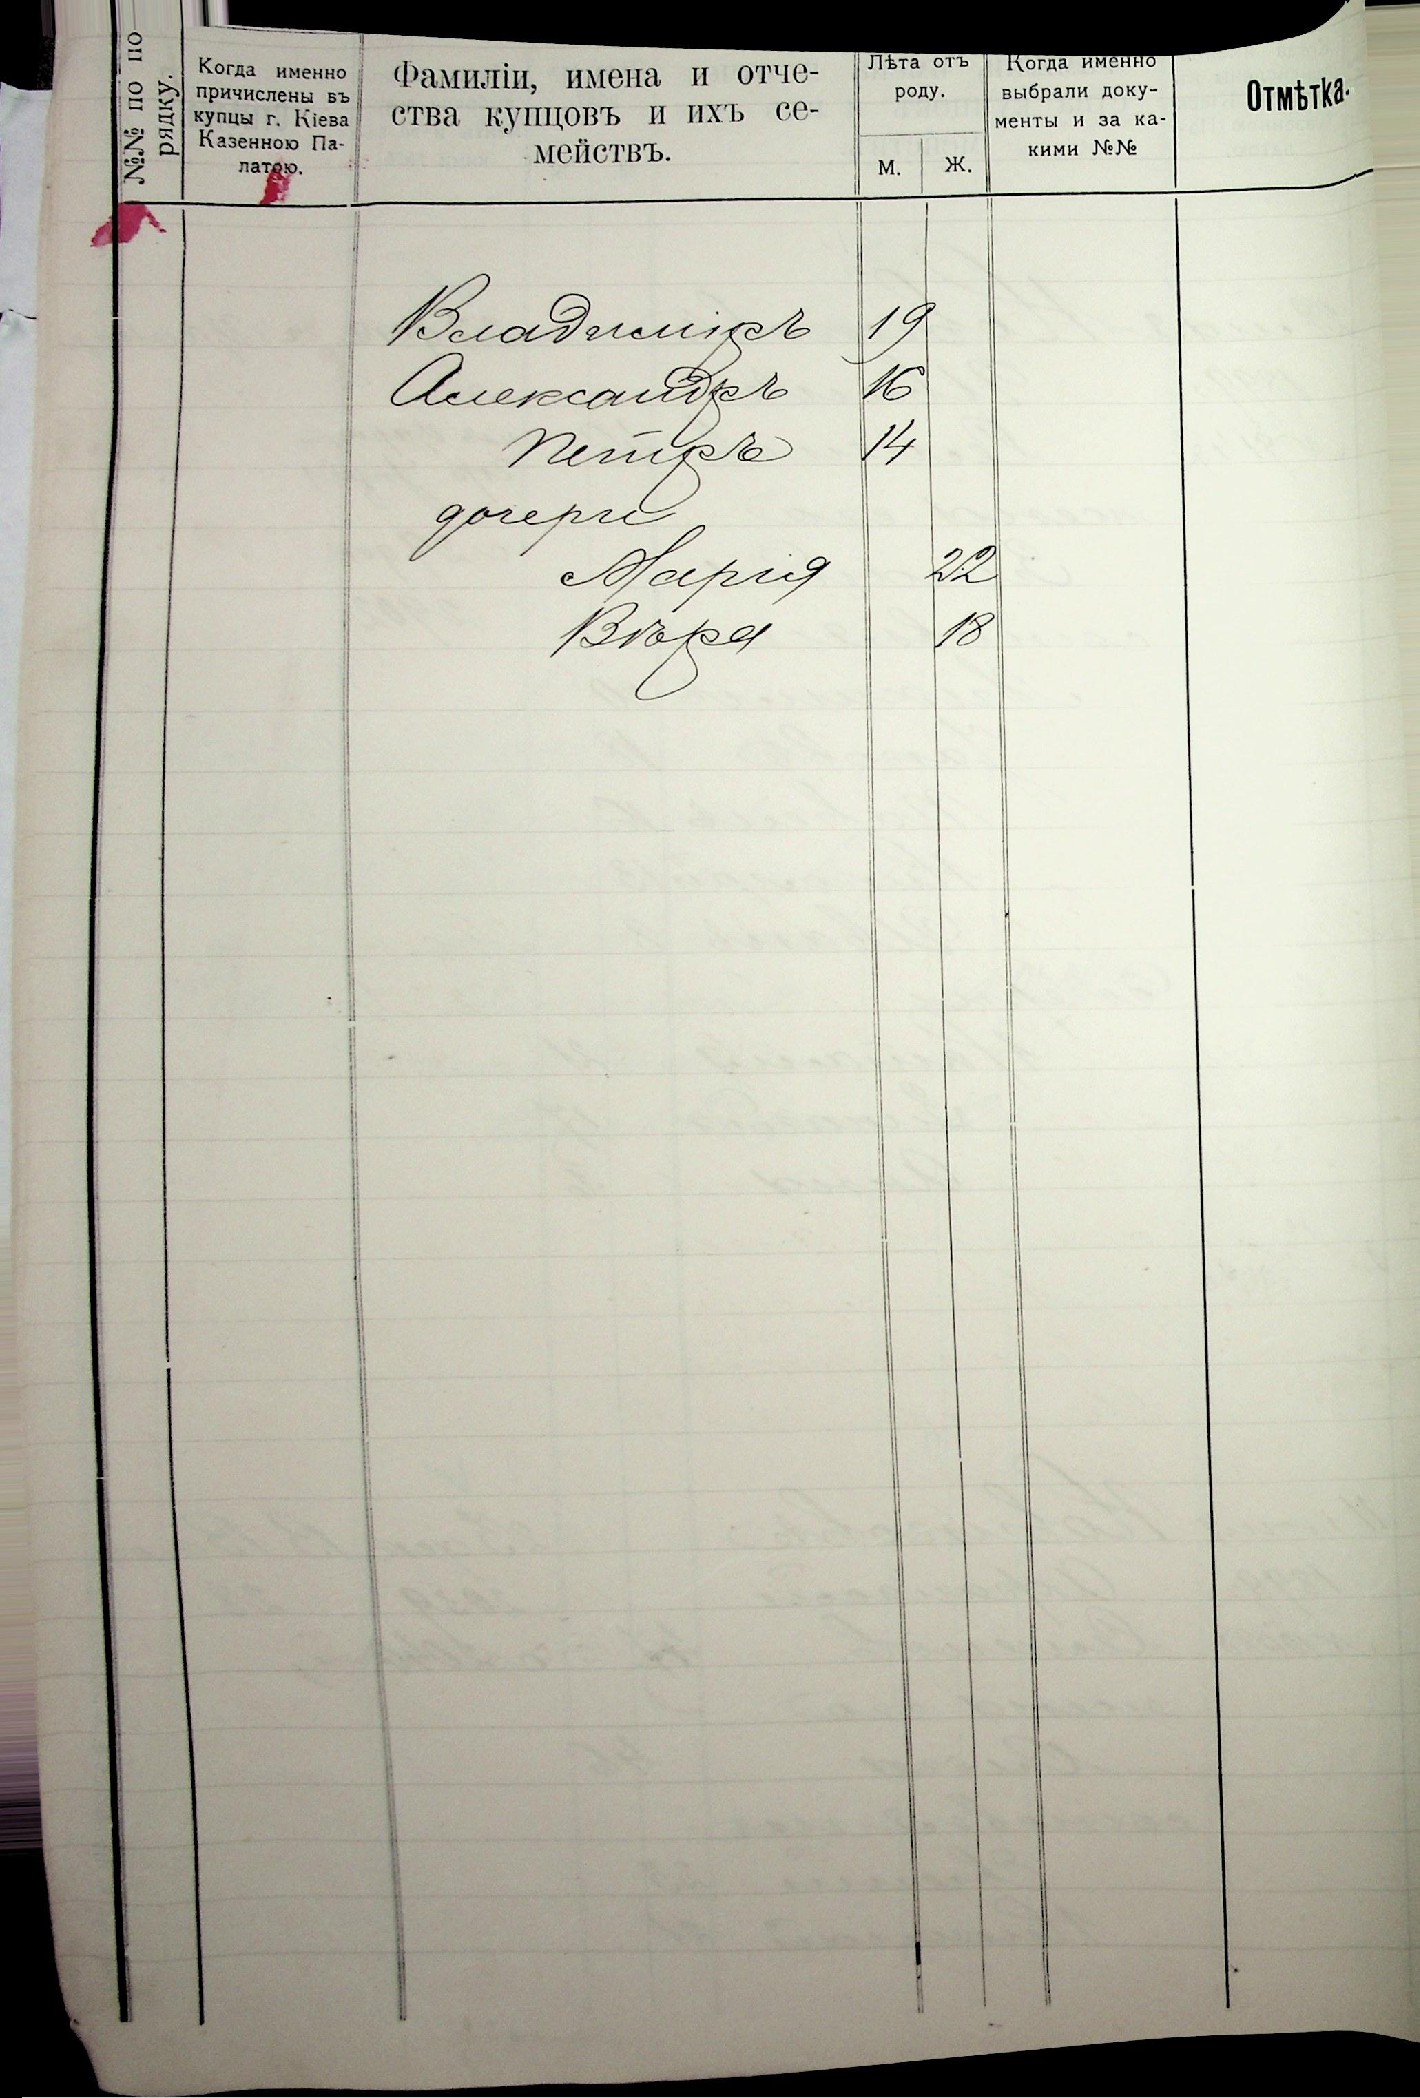 №№ по по
рядку.
Когда именно
причислены въ
купцы г. Кіева
Казенною Па-
латою.
Фамиліи, имена и отче-
ства купцовъ и ихъ се-
мействъ.
Лѣта отъ
роду.
М. Ж.
Когда именно
выбрали доку-
менты и за ка-
кими №№
Отмѣтка.
Владиміръ 19
Александръ 16
Петръ 14
дочери
Марія 22
Вѣра 18